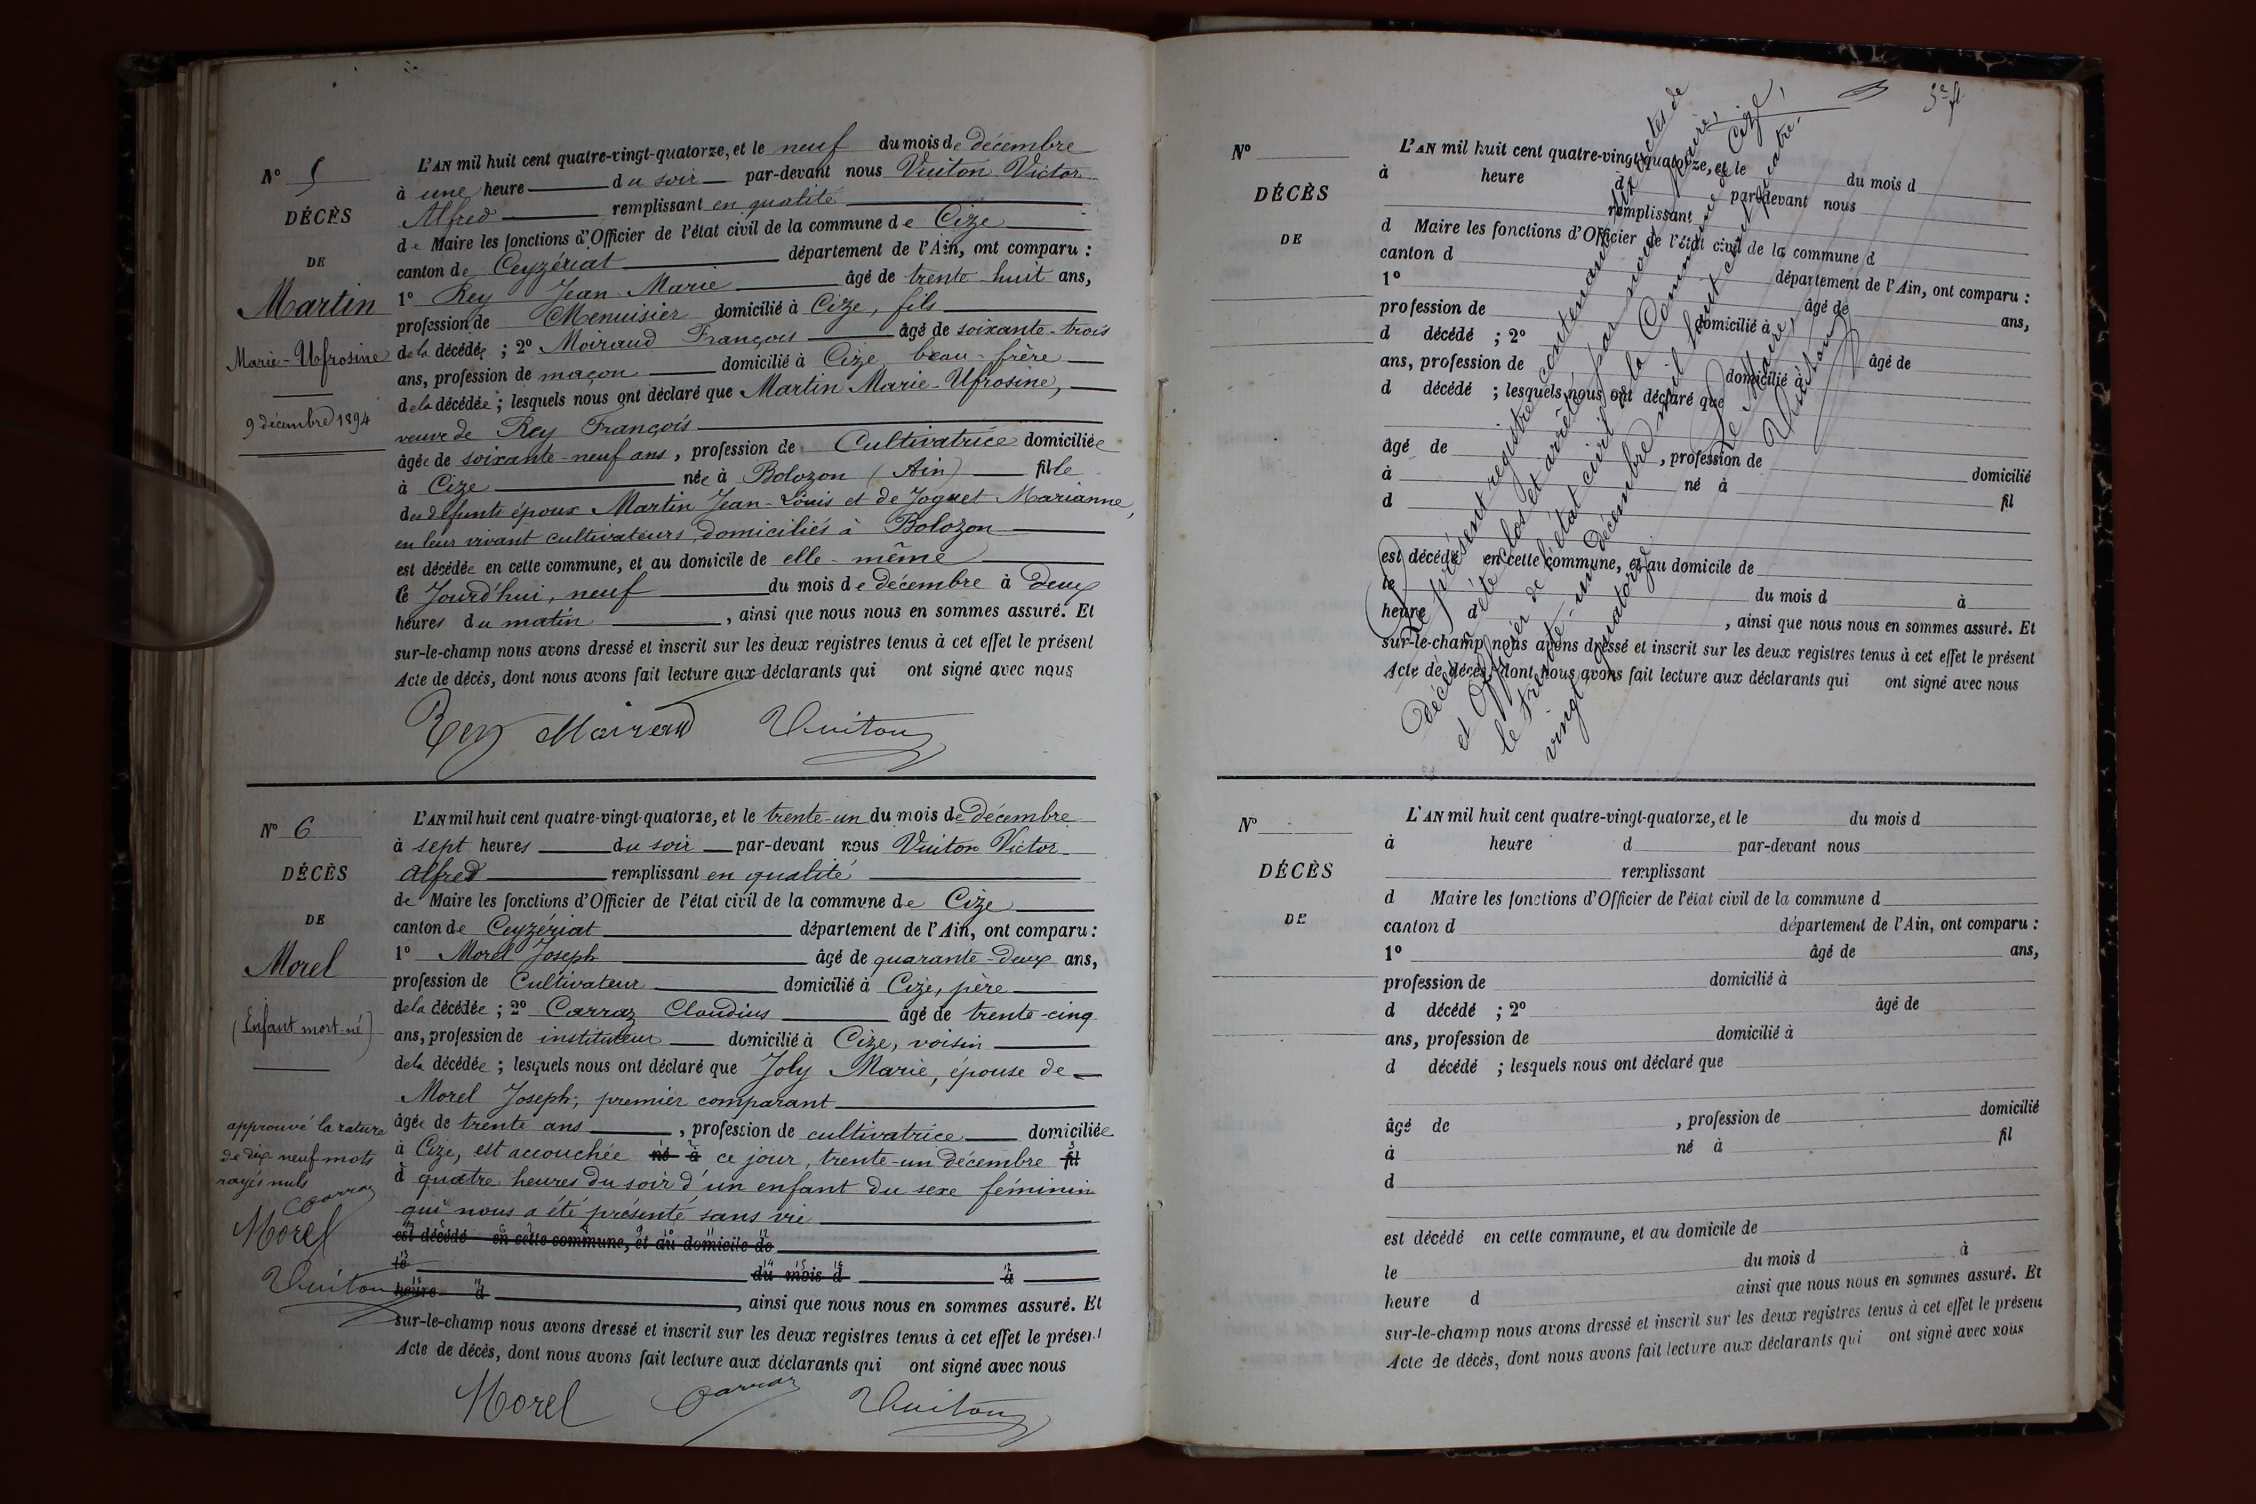 N° 5
DÉCÈS
DE
Martin
Marie-Ufrosine
9 décembre 1894
L'AN mil huit cent quatre-vingt-quatorze, et le neuf du mois de décembre
à une heure du soir par-devant nous Vuiton Victor
Alfred remplissant en qualité
de Maire les fonctions d'Officier de l'état civil de la commune de Cize
canton de Ceyzériat département de l'Ain, ont comparu :
1° Rey Jean Marie âgé de trente-huit ans,
profession de Menuisier domicilié à Cize, fils
de la décédée ; 2° Moiraud François âgé de soixante-trois
ans, profession de maçon domicilié à Cize, beau-frère
de la décédée ; lesquels nous ont déclaré que Martin Marie-Ufrosine,
veuve de Rey François
âgée de soixante-neuf ans, profession de Cultivatrice domiciliée
à Cize née à Bolozon (Ain) fille
des défunts époux Martin Jean-Louis et de Joguet Marianne,
en leur vivant cultivateurs domiciliés à Bolozon
est décédée en cette commune, et au domicile de elle-même
le Jourd'hui, neuf du mois de décembre à deux
heures du matin, ainsi que nous nous en sommes assuré. Et
sur-le-champ nous avons dressé et inscrit sur les deux registres tenus à cet effet le présent
Acte de décès, dont nous avons fait lecture aux déclarants qui ont signé avec nous
Rey Moiraud Vuiton
N° 6
DÉCÈS
DE
Morel
(Enfant mort-né)
approuvé la rature
de dix neuf mots
rayés nuls
Carraz
Morel
Vuiton
L'AN mil huit cent quatre-vingt-quatorze, et le trente-un du mois de Décembre
à sept heures du soir par-devant nous Vuiton Victor
Alfred remplissant en qualité
de Maire les fonctions d'Officier de l'état civil de la commune de Cize
canton de Ceyzériat département de l'Ain, ont comparu :
1° Morel Joseph âgé de quarante-deux ans,
profession de Cultivateur domicilié à Cize, père
de la décédée ; 2° Carraz Claudius âgé de trente-cinq
ans, profession de instituteur domicilié à Cize, voisin
de la décédée ; lesquels nous ont déclaré que Joly Marie, épouse de
Morel Joseph, premier comparant
âgée de trente ans, profession de cultivatrice domiciliée
à Cize, est accouchée né à ce jour, trente-un décembre fil
à quatre heures du soir d'un enfant du sexe féminin
qui nous a été présenté sans vie
est décédé en cette commune, et au domicile de
le du mois d à
heure d, ainsi que nous nous en sommes assuré. Et
sur-le-champ nous avons dressé et inscrit sur les deux registres tenus à cet effet le présent
Acte de décès, dont nous avons fait lecture aux déclarants qui ont signé avec nous
Morel Carraz Vuiton
N°
DÉCÈS
DE
L'AN mil huit cent quatre-vingt-quatorze, et le du mois d
à heure d par-devant nous
remplissant
d Maire les fonctions d'Officier de l'état civil de la commune d
canton d département de l'Ain, ont comparu :
1° âgé de ans,
profession de domicilié à
d décédé ; 2° âgé de
ans, profession de domicilié à
d décédé ; lesquels nous ont déclaré que
âgé de , profession de domicilié
à né à fil
d
est décédé en cette commune, et au domicile de
le du mois d à
heure d , ainsi que nous nous en sommes assuré. Et
sur-le-champ nous avons dressé et inscrit sur les deux registres tenus à cet effet le présent
Acte de décès, dont nous avons fait lecture aux déclarants qui ont signé avec nous
Le présent registre contenant six actes de
décès a été clos et arrêté par nous Maire,
et Officier de l'état civil de la Commune de Cize,
le trente-un décembre mil huit cent quatre-
vingt quatorze.
Le Maire,
Vuiton
N°
DÉCÈS
DE
L'AN mil huit cent quatre-vingt-quatorze, et le du mois d
à heure d par-devant nous
remplissant
d Maire les fonctions d'Officier de l'état civil de la commune d
canton d département de l'Ain, ont comparu :
1° âgé de ans,
profession de domicilié à
d décédé ; 2° âgé de
ans, profession de domicilié à
d décédé ; lesquels nous ont déclaré que
âgé de , profession de domicilié
à né à fil
d
est décédé en cette commune, et au domicile de
le du mois d à
heure d ainsi que nous nous en sommes assuré. Et
sur-le-champ nous avons dressé et inscrit sur les deux registres tenus à cet effet le présent
Acte de décès, dont nous avons fait lecture aux déclarants qui ont signé avec nous